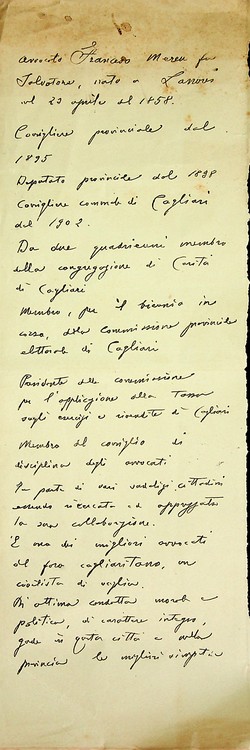 Avvocato Francesco Mereu fu
Salvatore, nato a Lanusei
il 23 aprile del 1858.
Consigliere provinciale dal
1895
Deputato provinciale dal 1898
Consigliere comunale di Cagliari
dal 1902.
Da due quadrienni membro
della congregazione di Carità
di Cagliari
Membro, per il biennio in
corso, della commissione provinciale
elettorale di Cagliari
Presidente della commissione
per l'applicazione della tassa
sugli esercizi e rivendite di Cagliari
Membro del consiglio di
disciplina degli avvocati.
Fa parte di vari sodalizi cittadini
essendo ricercata ed apprezzata
la sua collaborazione.
È uno dei migliori avvocati
del foro cagliaritano, un
civilista di vaglia.
Di ottima condotta morale e
politica, di carattere integro,
gode in questa città e nella
provincia le migliori simpatie